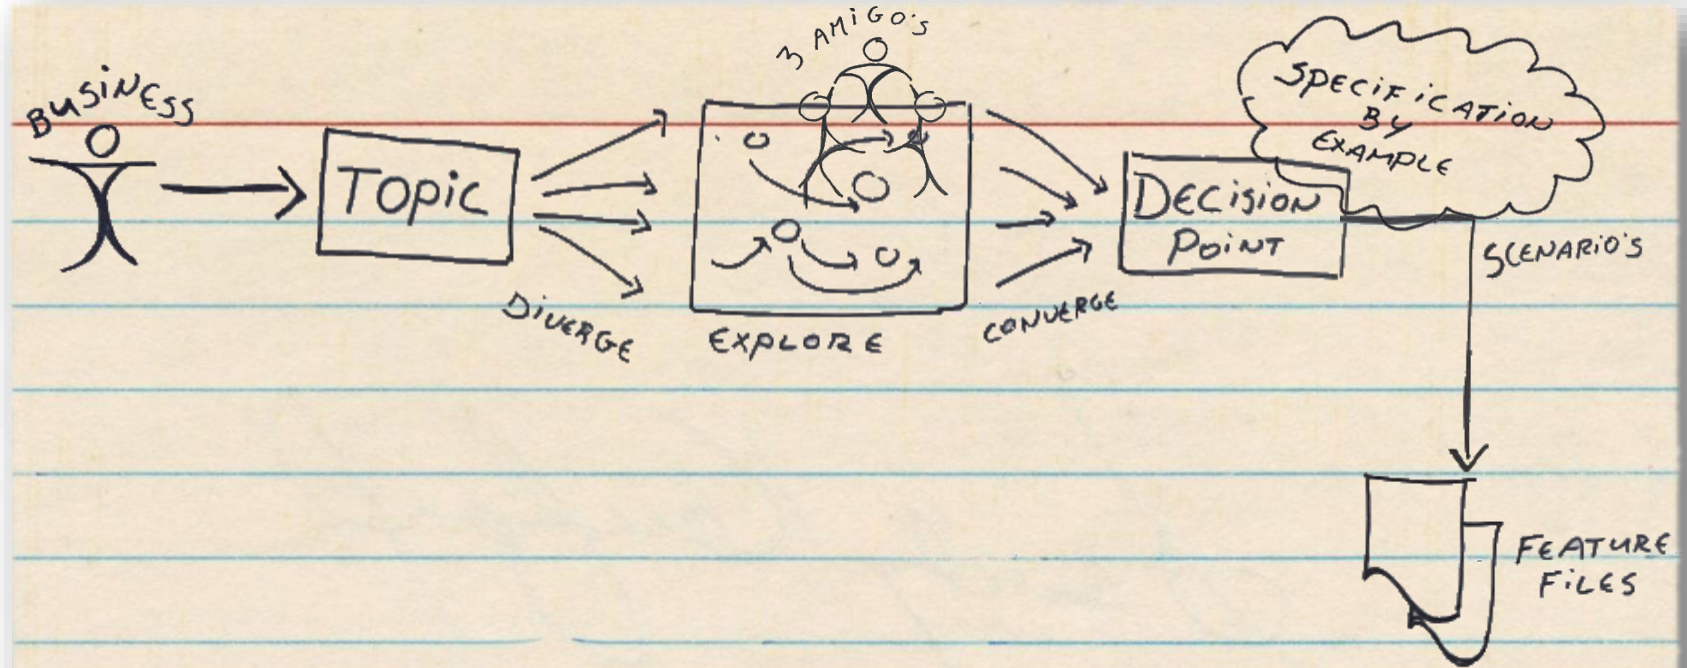 BUSINESS
TOPIC
DIVERGE
3 AMIGO'S
EXPLORE
CONVERGE
DECISION
POINT
SPECIFICATION
BY
EXAMPLE
SCENARIO'S
FEATURE
FILES